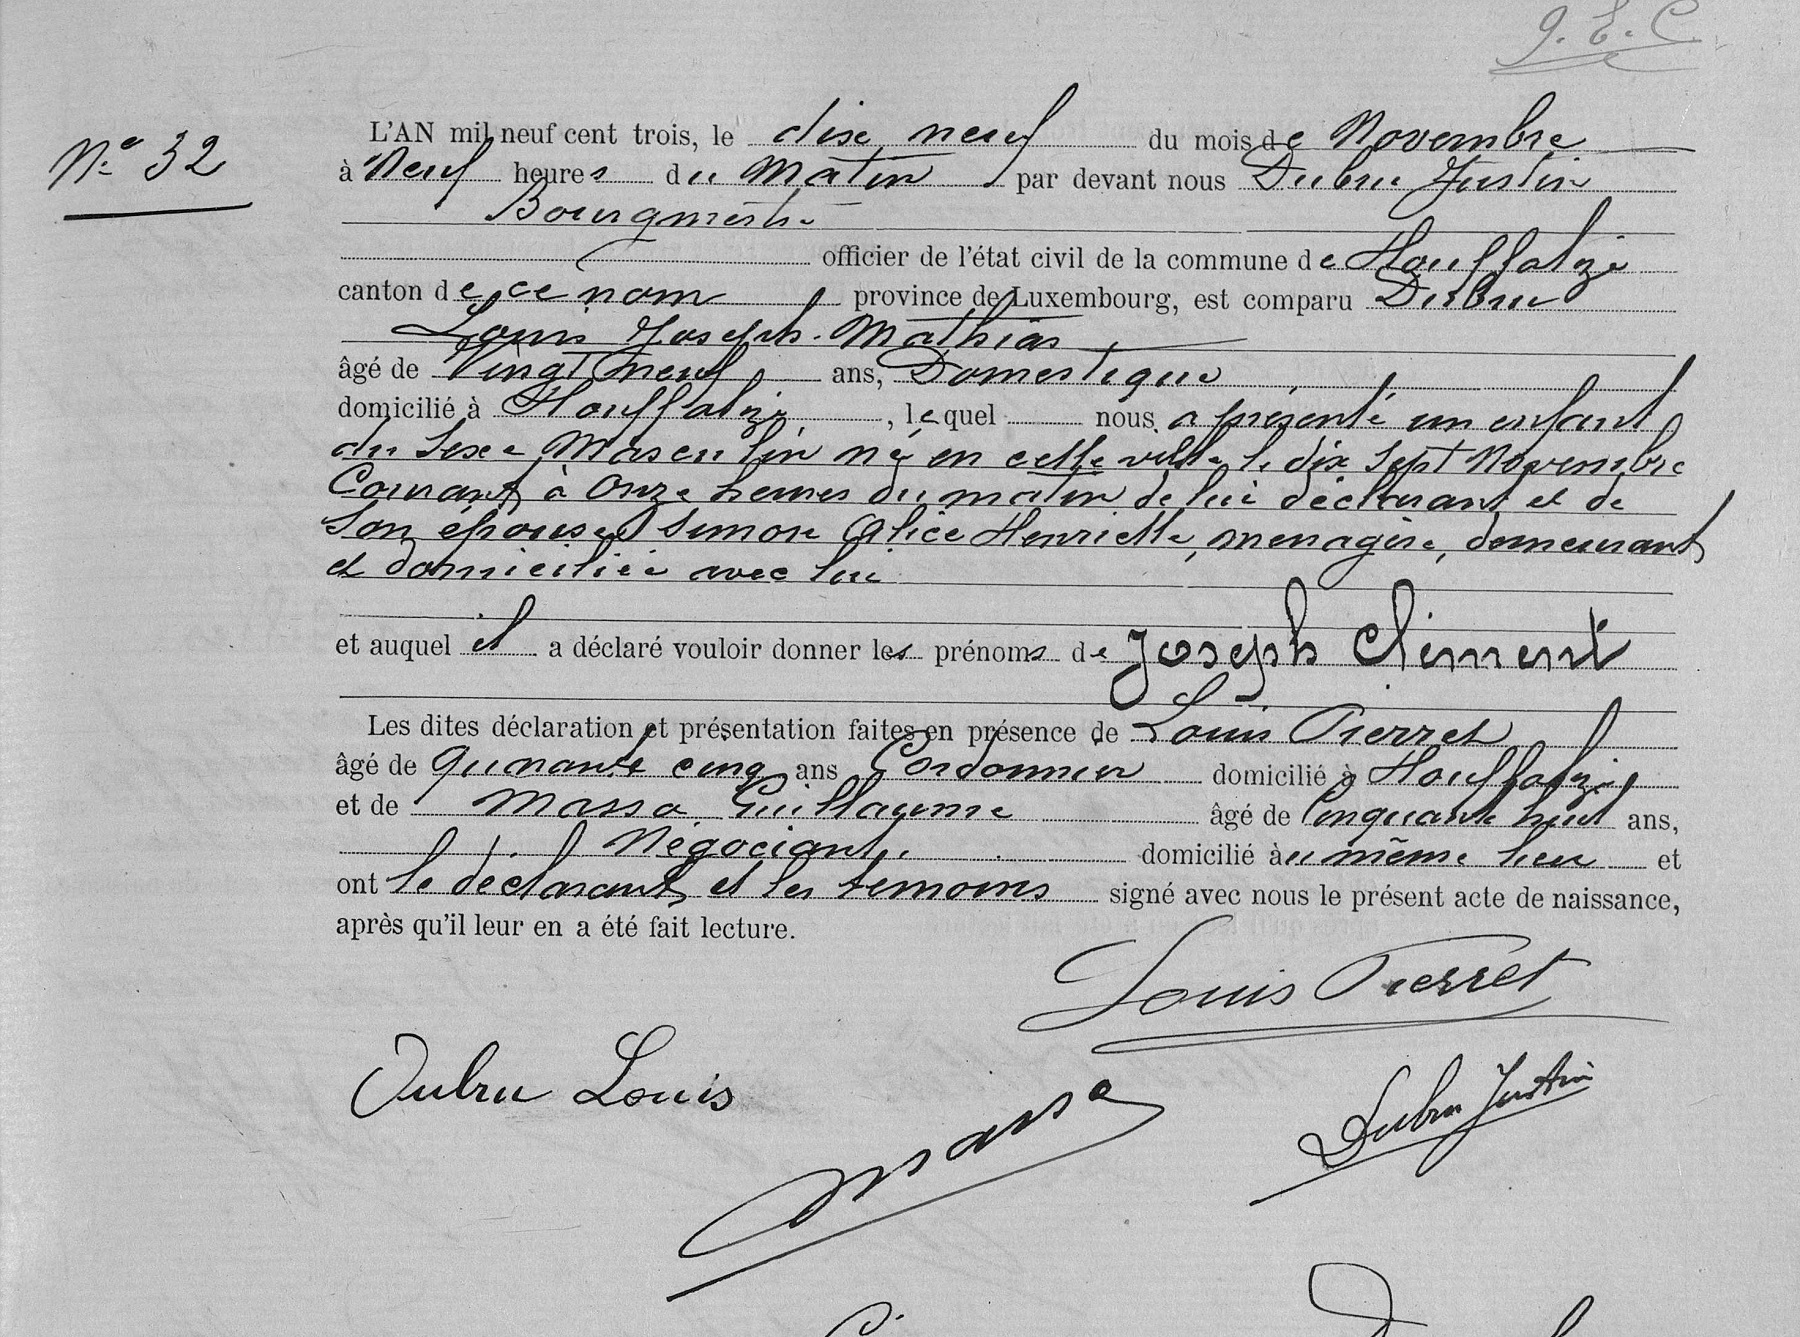 J. E. C.
N° 32
L'AN mil neuf cent trois, le dixe neuf du mois de Novembre
à Neuf heures du Matin par devant nous Dubru Justin
Bourgmestre
officier de l'état civil de la commune de Houffalize
canton de ce nom province de Luxembourg, est comparu Dubru
Louis Joseph Mathias
âgé de Vingt neuf ans, Domestique
domicilié à Houffalize, lequel nous a présenté un enfant
du Sexe Masculin né en cette ville le dix Sept Novembre
Courant à Onze heures du matin de lui déclarant et de
Son épouse Simon Alice Henriette, menagère, demeurant
et domiciliée avec lui
et auquel il a déclaré vouloir donner les prénoms de Joseph Clément
Les dites déclaration et présentation faites en présence de Louis Pierret
âgé de Quarante cinq ans Cordonnier domicilié à Houffalize
et de Massa Guillaume âgé de Cinquante huit ans,
Négociant domicilié au même lieu et
ont le déclarant et les temoins signé avec nous le présent acte de naissance,
après qu'il leur en a été fait lecture.
Louis Pierret
Dubru Louis
Massa
Dubru Justin